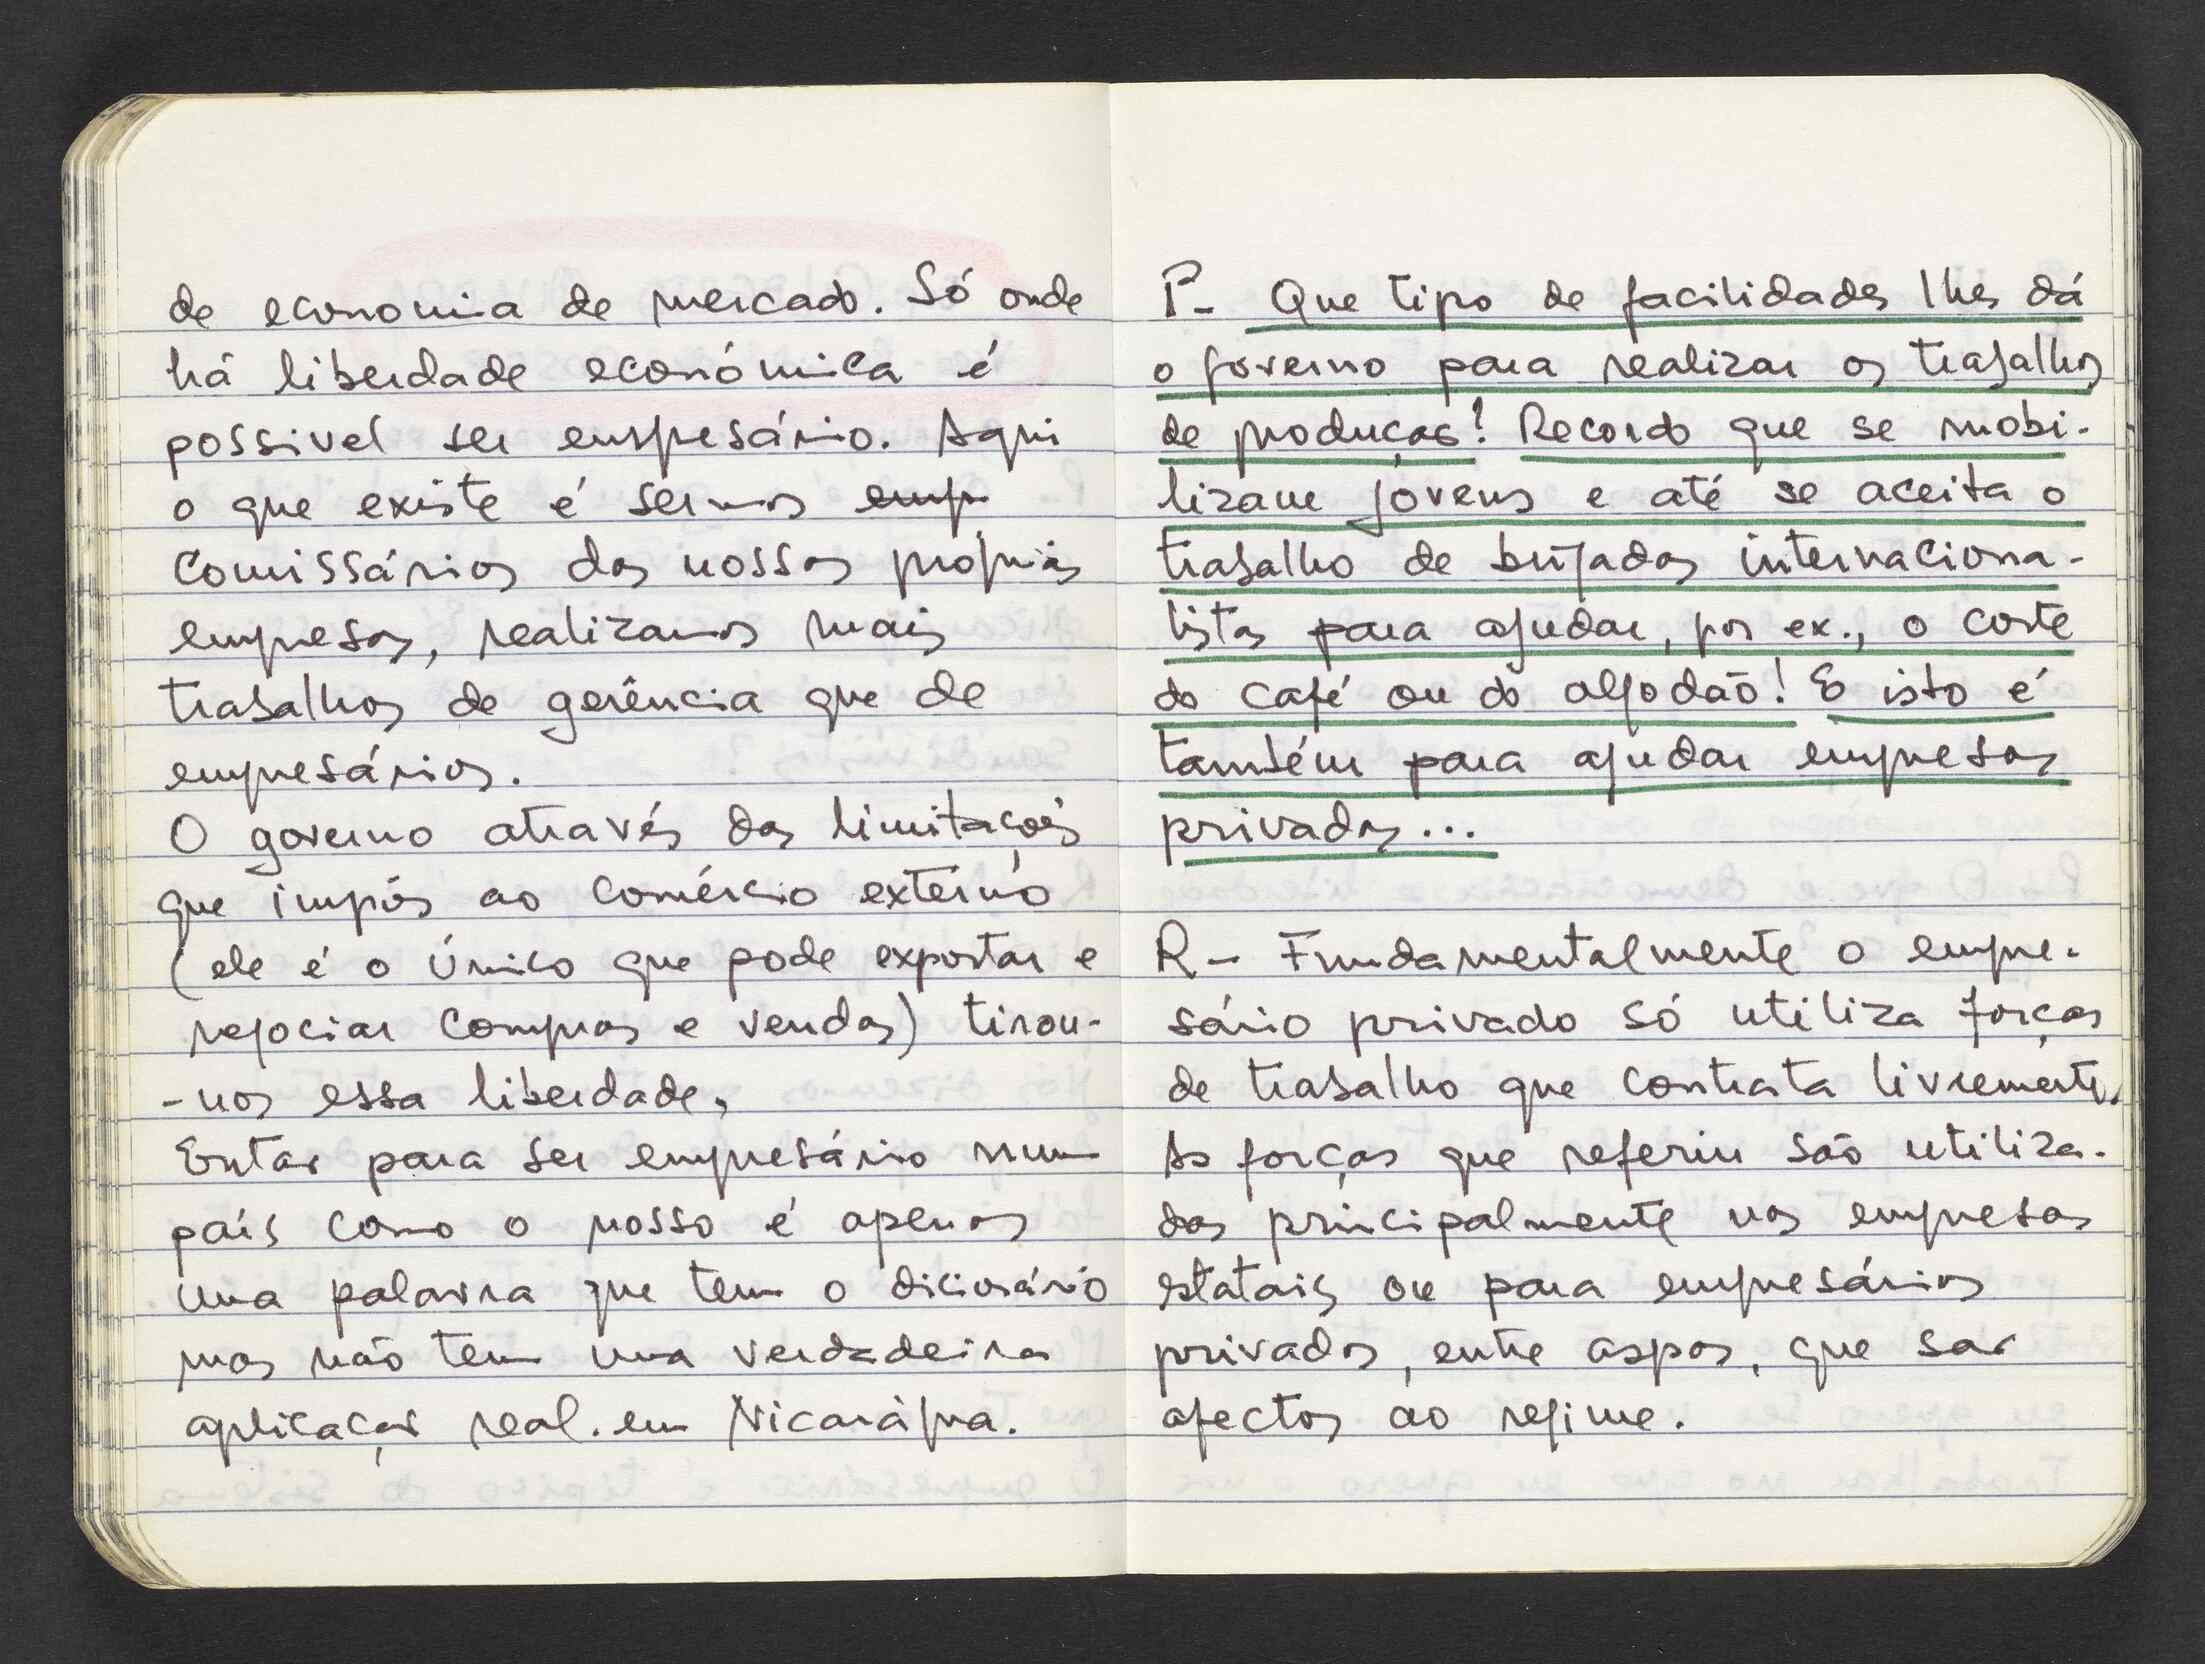 de economia de mercado. Só onde
há liberdade económica é
possivel ser empresário. Aqui
o que existe é sermos emp
comissários das nossas próprias
empresas, realizamos mais
trabalhos de gerência que de
empresários.
O governo através das limitações
que impôs ao comércio externo
(ele é o único que pode exportar e
negociar compras e vendas) tirou-
-nos essa liberdade.
Então para ser empresário num
país como o nosso é apenas
uma palavra que tem o dicionário
mas não tem uma verdadeira
aplicação real. em Nicarágua.
P- Que tipo de facilidades lhes dá
o governo para realizar os trabalhos
de produção? Recordo que se mobi-
lizam jovens e até se aceita o
trabalho de brigadas internaciona-
listas para ajudar, por ex., o corte
do café ou do algodão! E isto é
também para ajudar empresas
privadas...
R- Fundamentalmente o empre-
sário privado só utiliza forças
de trabalho que contrata livremente.
As forças que referiu são utiliza-
das principalmente nas empresas
estatais ou para empresários
privados, entre aspas, que são
afectos ao regime.